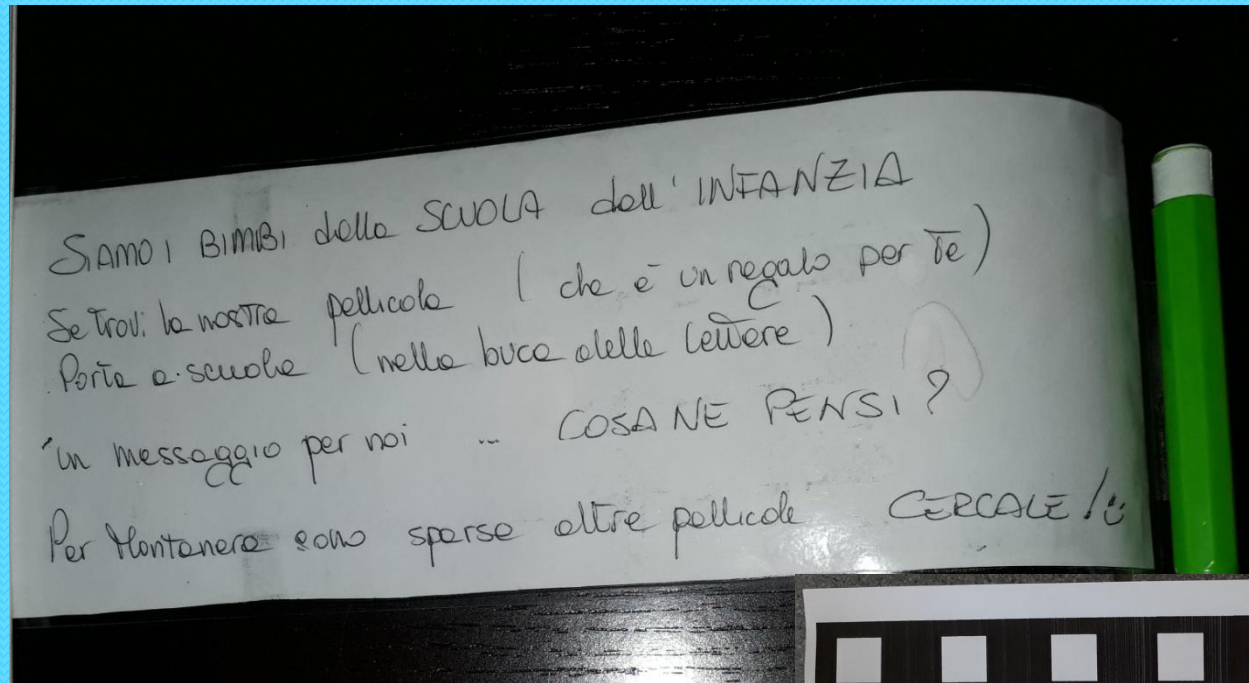 SIAMO I BIMBI della SCUOLA dell'INFANZIA
Se trovi la nostra pellicola (che è un regalo per Te)
Porta a scuola (nella buca delle lettere)
un messaggio per noi ... COSA NE PENSI?
Per Montanera sono sparse altre pellicole CERCALE!